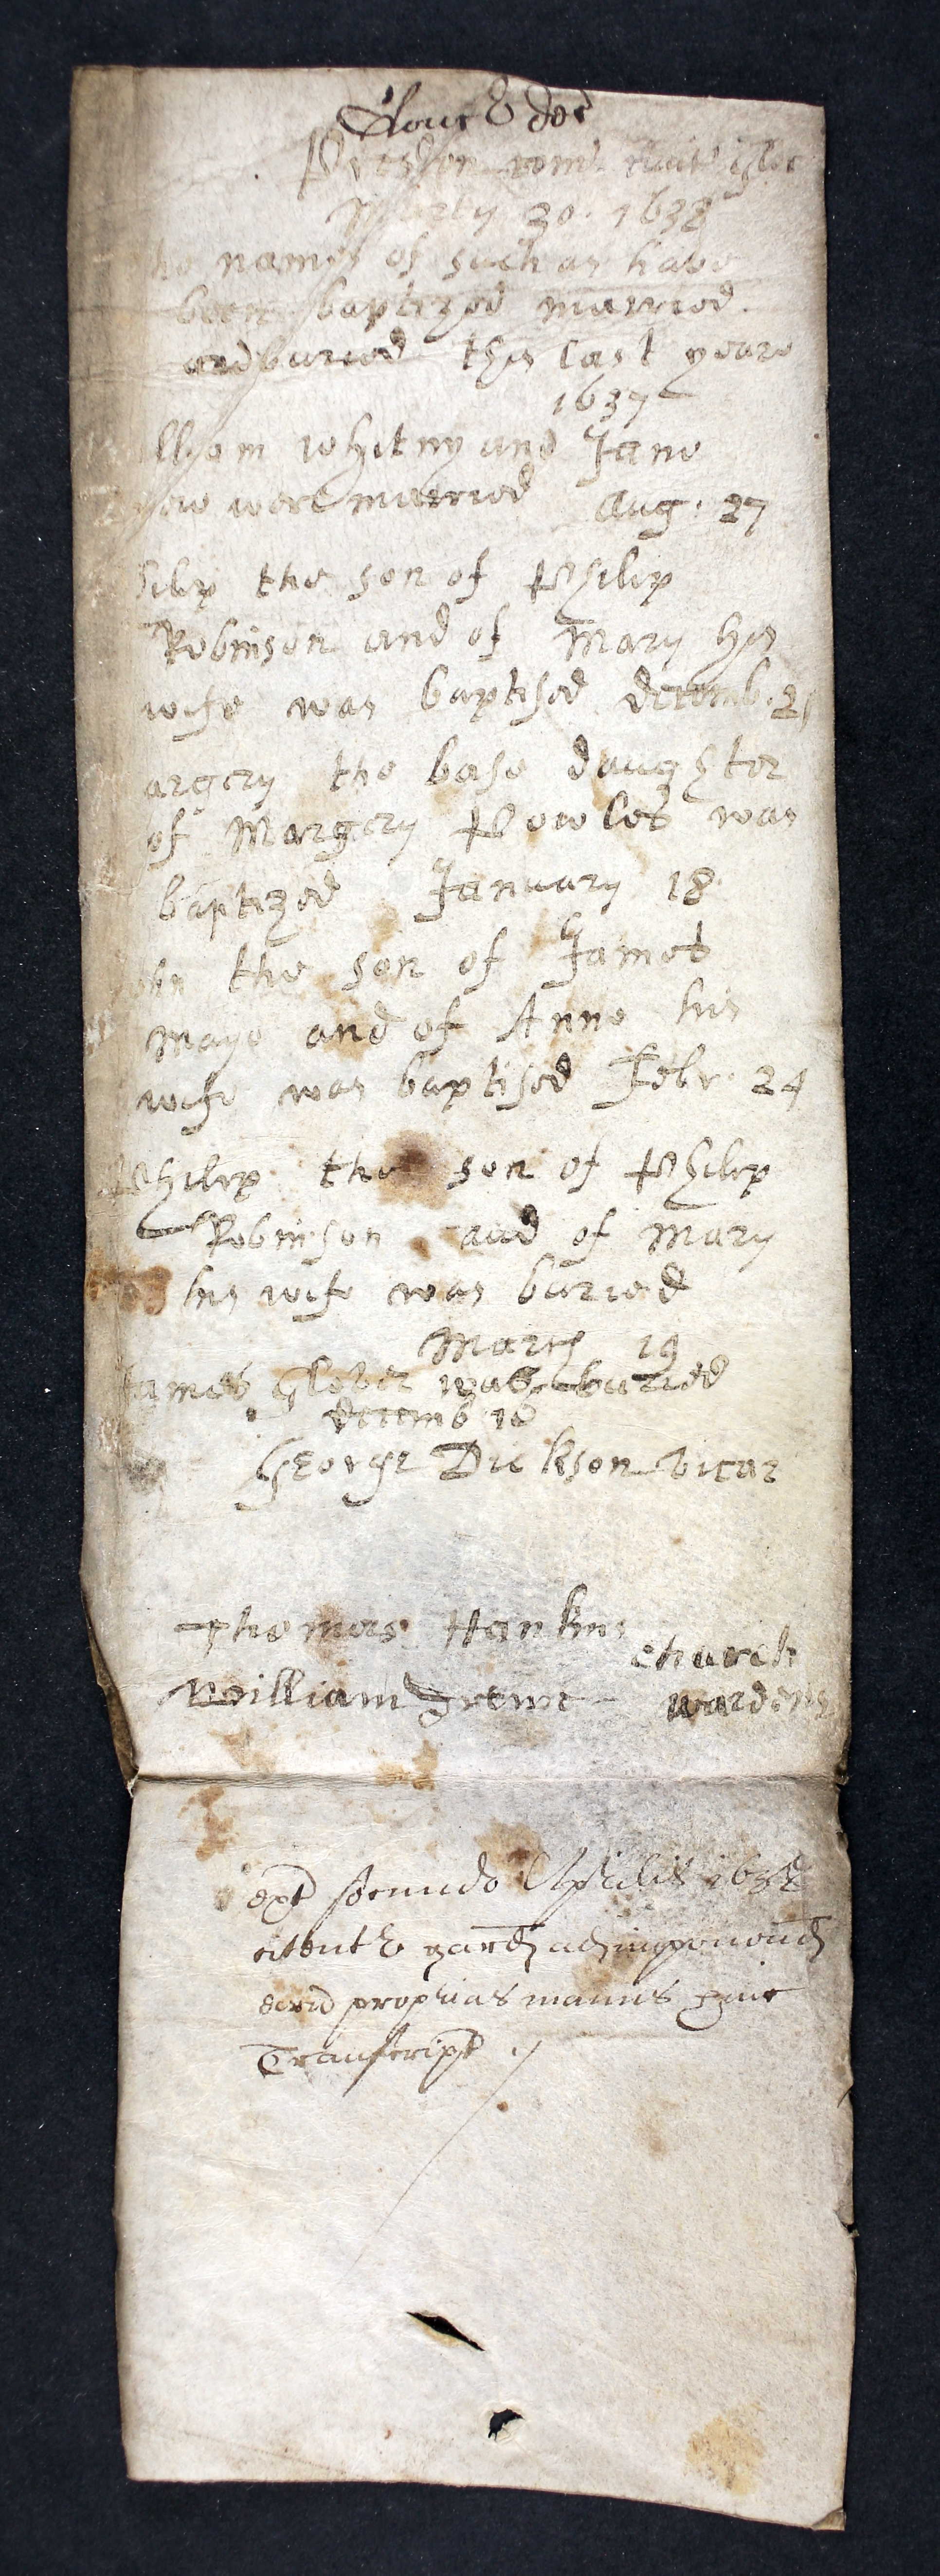 Preston com̄ Civit Glouc
Martij 30. 1638
the names of such as have
been baptized married.
and buried this last yeare
1637
lliam whitny and Jane
were married Aug: 27
hilip the son of Philip
Robinson and of Mary his
wife was baptised decemb. 21
argery the base daughter
of Margery Powles was
baptized January 18
ohn the son of James
Mayo and of Anne his
wife was baptised Febr. 24
Philip the son of Philip
Robinson and of Mary
his wife was buried
March 19
James Glover was buried
decemb 18
George Dickson vicar
Thomas Hankins
church
William wardens
Aprilis 1638
proprias manus
Transcript